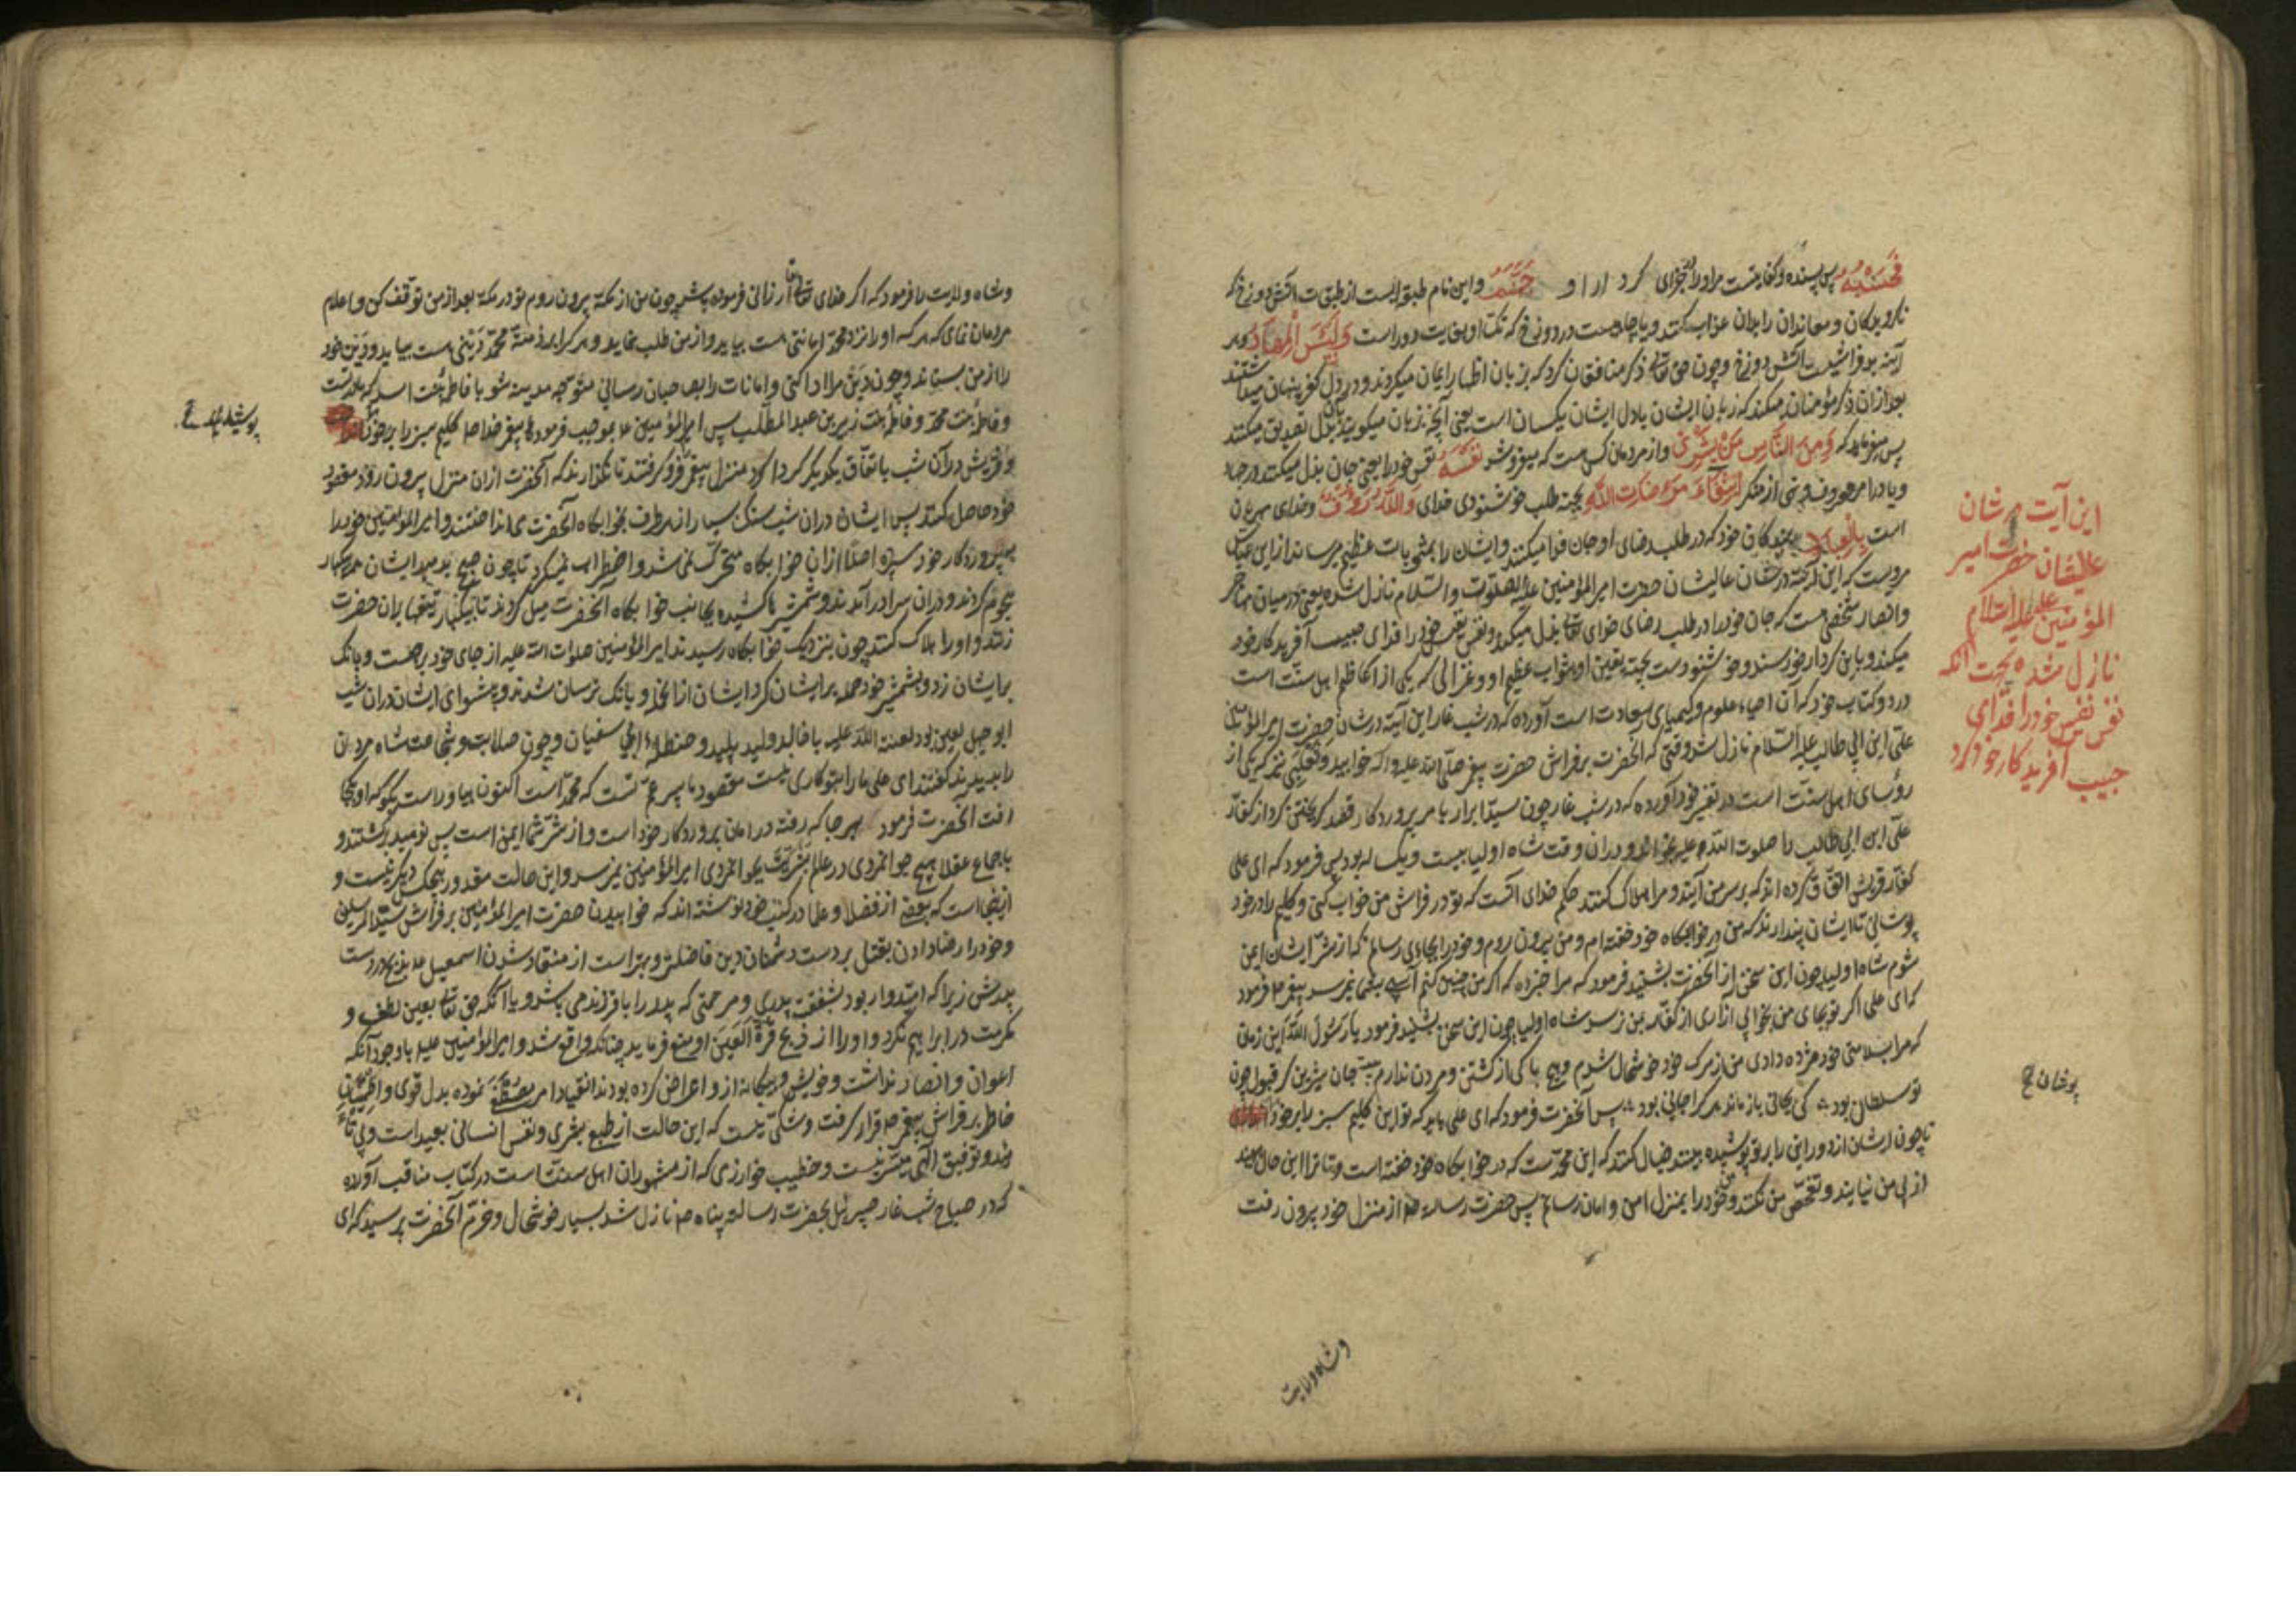 فَحَسْبُهُ پس بسنده و کفایتست مر او را جزای کرد ار او جَهَنَّم و این نام طبقه ایست از طبقات آتش دوزخ که
ناکرویدکان و معاندان را بدان عذاب کنند و یا چاهیست در دوزخ که تک او بغایت دور است وَلَبِئْسَ الْمِهَادُ و هر
آینه بد فراشیست آتش دوزخ و چون حق تعالی ذکر منافقان کرد که بزبان اظهار ایمان میکردند و در دل کفر پنهان میداشتند
بعد از آن ذکر مؤمنان میکند که زبان ایشان با دل ایشان یکسان است یعنی آنچه بزبان میکویند بدل تصدیق میکنند
پس میفرماید که وَمِنَ النَّاسِ مَنْ يَشْرِي و از مردمان کس هست که میفروشد نَفْسَهُ نفس خود را یعنی جان بذل میکند در جهاد
و یا در امر معروف و نهی از منکر ابْتِغَاءَ مَرْضَاتِ اللَّهِ بجهة طلب خوشنودی خدای وَاللَّهُ رَؤُفٌ و خدای مهربان
است بِالْعِبَادِ ببندکان خود که در طلب رضای او جان فدا میکنند و ایشان را بمثوبات عظیم میرساند از ابن عباس
مرویست که این آیة در شان عالیشان حضرت امیر المؤمنین علیه الصلوات و السلام نازل شده یعنی در میان مهاجر
و انصار شخصی هست که جان خود را در طلب رضای خدای تعالی بذل میکند و نفس نفیس خود را فدای حبیب آفریدکار خود
میکند و باین کردار خورسند و خوشنودست بجهة یقین او بثواب عظیم او و غزالی که یکی از اعاظم اهل سنت است
در دو کتاب خود که آن احیاء علوم و کیمیای سعادت است آورده که در شب غار این آیة در شان حضرت امیر المؤمنین
علی ابن ابی طالب علیه السلام نازل شد وقتی که آنحضرت بر فراش حضرت پیغمبر صلی الله علیه و آله خوابید و ثعلبی نیز که یکی از
رؤسای اهل سنت است در تفسیر خود آورده که در شب غار چون سید ابرار بامر پروردکار قصد کریختن کرد از کفار
علی ابن ابی طالب را صلوت الله علیه بخواند و در ان وقت شاه اولیا بیست و یک ساله بود پس فرمود که ای علی
کفار قریش اتفاق کرده اند که بر سر من آیند و مرا هلاک کنند حکم خدای آنست که تو در فراش من خواب کنی و کلیم را در خود
پوشانی تا ایشان پندارند که من در خوابکاه خود خفته ام و من بیرون روم و خود را بجایی رسانم که از شر ایشان ایمن
شوم شاه اولیا چون این سخن از آنحضرت بشنید فرمود که مرا خبر ده که اکر من چنین کنم آسیبی بشما نمیرسد پیغمبر صلعم فرمود
که ای علی اکر تو بجای من بخوابی آزاری از کفار بمن نرسد شاه اولیا چون این سخن بشنید فرمود یا رسول الله این زمان
که مرا بسلامتی خود مژده دادی من از مرک خود خوشحال شدم و هیچ باکی از کشتن و مردن ندارم بیت جان شیرین کر قبول چون
تو سلطان بود ه کی بجانی باز ماند هر کرا جانی بود ه پس آنحضرت فرمود که ای علی باید که تو این کلیم سبز را بر خود
تا چون ایشان از دور این را بر تو پوشیده بینند خیال کنند که این محمدست که در خوابکاه خود خفته است و تا ترا این حال بینند
از پی من نیایند و تفحص من نکنند و من خود را بمنزل امن و امان رسانم پس حضرت رسالة صلعم از منزل خود بیرون رفت
این آیت در شان
عالیشان حضرت امیر
المؤمنین علیه السلام
نازل شده بجهت آنکه
نفس نفیس خود را فدای
حبیب آفریدکار خود کرد
پوشان ح
و شاه ولایت
و شاه ولایت را فرمود که اکر خدای تعالی ارزانی فرموده باشد چون من از مکة بیرون روم تو در مکة بعد از من توقف کن و اعلام
مردمان نمای که هر که او را نزد محمد امانتی هست بیاید و از من طلب نماید و هر کرا بر ذمة محمد دینی هست بیاید و دین خود
را از من بستاند و چون دین مرا ادا کنی و امانات را بصاحبان رسانی متوجه مدینة شو با فاطمه بنت اسد که مادر تست
و فاطمه بنت محمد و فاطمه بنت زبیر بن عبد المطلب پس امیر المؤمنین ع بموجب فرموده پیغمبر خدا صلعم کلیم سبز را بر خود
و قریش در آن شب باتفاق یکدیکر کرداکرد منزل پیغمبر فرو کرفتند تا نکذارند که آنحضرت از ان منزل بیرون رود و مقصود
خود حاصل کنند پس ایشان در ان شب سنک بسیار از هر طرف بخوابکاه آنحضرت می انداختند و امیر المؤمنین خود را
بپروردکار خود سپرد و اصلا از ان خوابکاه متحرک نمی شد و اضطراب نمیکرد تا چون صبح بدمید ایشان همه یکبار
هجوم کردند و در ان سرا در آمدند و شمشیرها کشیده بجانب خوابکاه آنحضرت میل کردند تا بیکبار تیغها بر ان حضرت
زنند و او را هلاک کنند چون بنزدیک خوابکاه رسیدند امیر المؤمنین صلوات الله علیه از جای خود برجست و بانک
بر ایشان زد و بشمشیر خود حمله بر ایشان کرد ایشان از آنحال و بانک ترسان شدند و پیشوای ایشان در ان شب
ابو جهل لعین بود لعنة الله علیه با خالد ولید پلید و حنظله ابی سفیان و چون صلابت و شجاعت شاه مردان
را بدیدند کفتند ای علی ما را بتو کاری نیست مقصود ما پسر عم تست که محمد است اکنون بیا و راست بکو که او بکجا
رفت آنحضرت فرمود بهر جا که رفته در امان پروردکار خود است و از شر شما ایمن است پس نومید برکشتند و
باجماع عقلا هیچ جوانمردی در عالم بشریت بجوانمردی امیر المؤمنین نمیرسد و این حالت مقدور هیچکس دیکر نیست و
ازینجا است که بعضی از فضلا و علما در کتب خود نوشته اند که خوابیدن حضرت امیر المؤمنین بر فراش سید المرسلین
و خود را رضا دادن بقتل بر دست دشمنان دین فاضلتر و بهتر است از منقاد شدن اسمعیل ع بذبح در دست
پدرش زیرا که امیدوار بود بشفقت پدری و مرحمتی که پدر را با فرزند می باشد و یا آنکه حق تعالی بعین لطف و
مکرمت در ابراهیم نکرد و او را از ذبح قرة العین او منع فرماید چنانکه واقع شد و امیر المؤمنین علیه با وجود آنکه
اعوان و انصار نداشت و خویش و بیکانه از و اعراض کرده بودند انقیاد امر نموده بدل قوی و اطمینان
خاطر بر فراش پیغمبر صلعم قرار کرفت و شکی نیست که این حالت از طبع بشری و نفس انسانی بعید است و بی تائید
و توفیق الهی میسر نیست و خطیب خوارزمی که از مشهوران اهل سنت است در کتاب مناقب آورده
که در صباح شب غار جبرئیل بحضرت رسالت پناه صلعم نازل شد بسیار خوشحال و خرم آنحضرت پرسید که ای
پوشیدند ح